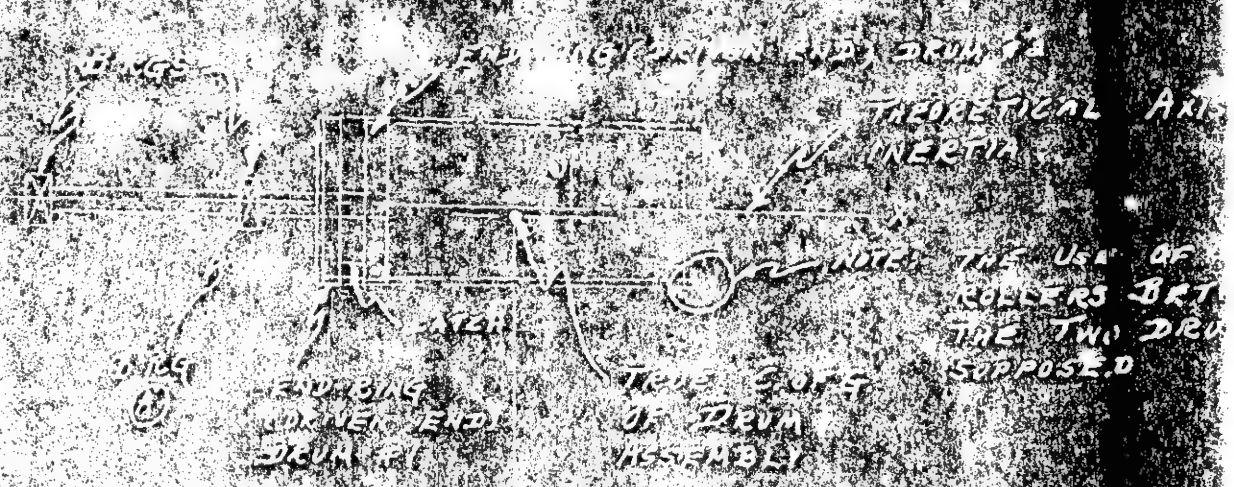 BRGS
END RING (DRIVEN END) DRUM #2
THEORETICAL AXIS
INERTIA
Y
X
NOTE: THE USE OF
ROLLERS BET
THE TWO DRU
SUPPOSED
LATCH
BRG
END RING
DRIVEN END
DRUM #1
TRUE C. OF G.
OF DRUM
ASSEMBLY